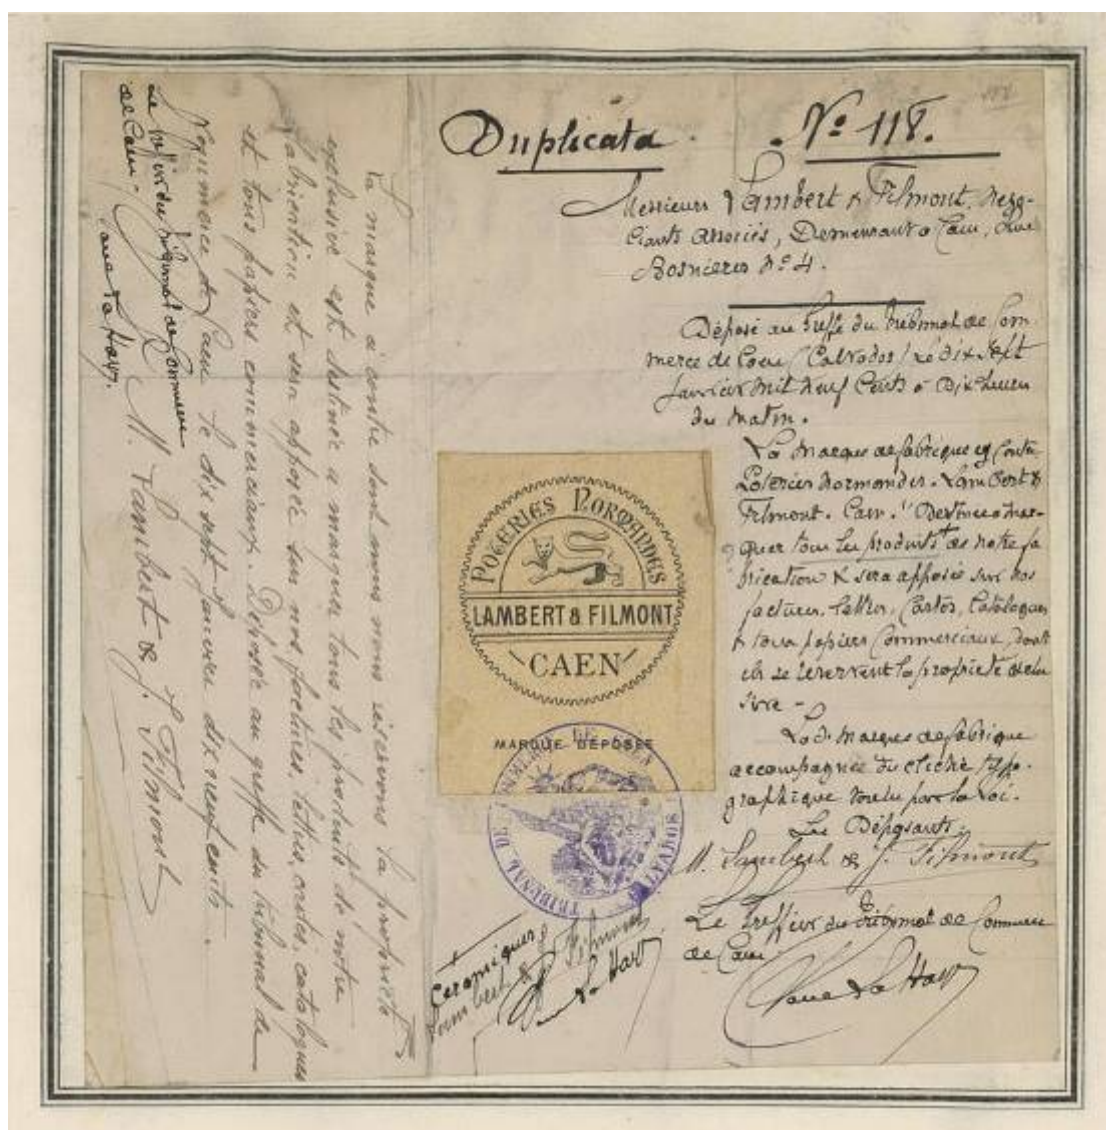 Duplicata. N° 118.
Messieurs Lambert & Filmont, Nego-
ciants associés, Demeurant a Caen, Rue
Bosnieres N° 4.
Déposé au Greffe du Tribunal de Com
merce de Caen (Calvados) Le dix Sept
Janvier Mil Neuf Cents a Dix heures
du Matin.
La Marque de fabrique
Poteries Normandes. Lambert &
Filmont. Caen. Destinée a Mar-
quer tous les produits de notre fa
brication & sera apposée sur nos
factures, lettres, Cartes, Catalogues
& tous papiers Commerciaux, dont
ils se reservent la propriété
Marque de fabrique
accompagnée du cliché typo-
graphique voulu par la Loi.
Les Déposants.
M. Lambert & J. Filmont
Le Greffier du Tribunal de Commerce
de Caen.
POTERIES NORMANDES
LAMBERT & FILMONT
CAEN
MARQUE DÉPOSÉE
TRIBUNAL DE COMMERCE DE CAEN
CALVADOS
Céramiques
Lambert & Filmont
La marque ci contre dont nous nous réservons la propriété
exclusive est destinée a marquer tous les produits de notre
fabrication et sera apposée sur nos factures, lettres, cartes, catalogues
et tous papiers commerciaux. Déposée au greffe du tribunal de
Commerce de Caen le dix sept janvier dix neuf cents.
M. Lambert & J. Filmont
Le Greffier du Tribunal de Commerce
de Caen.